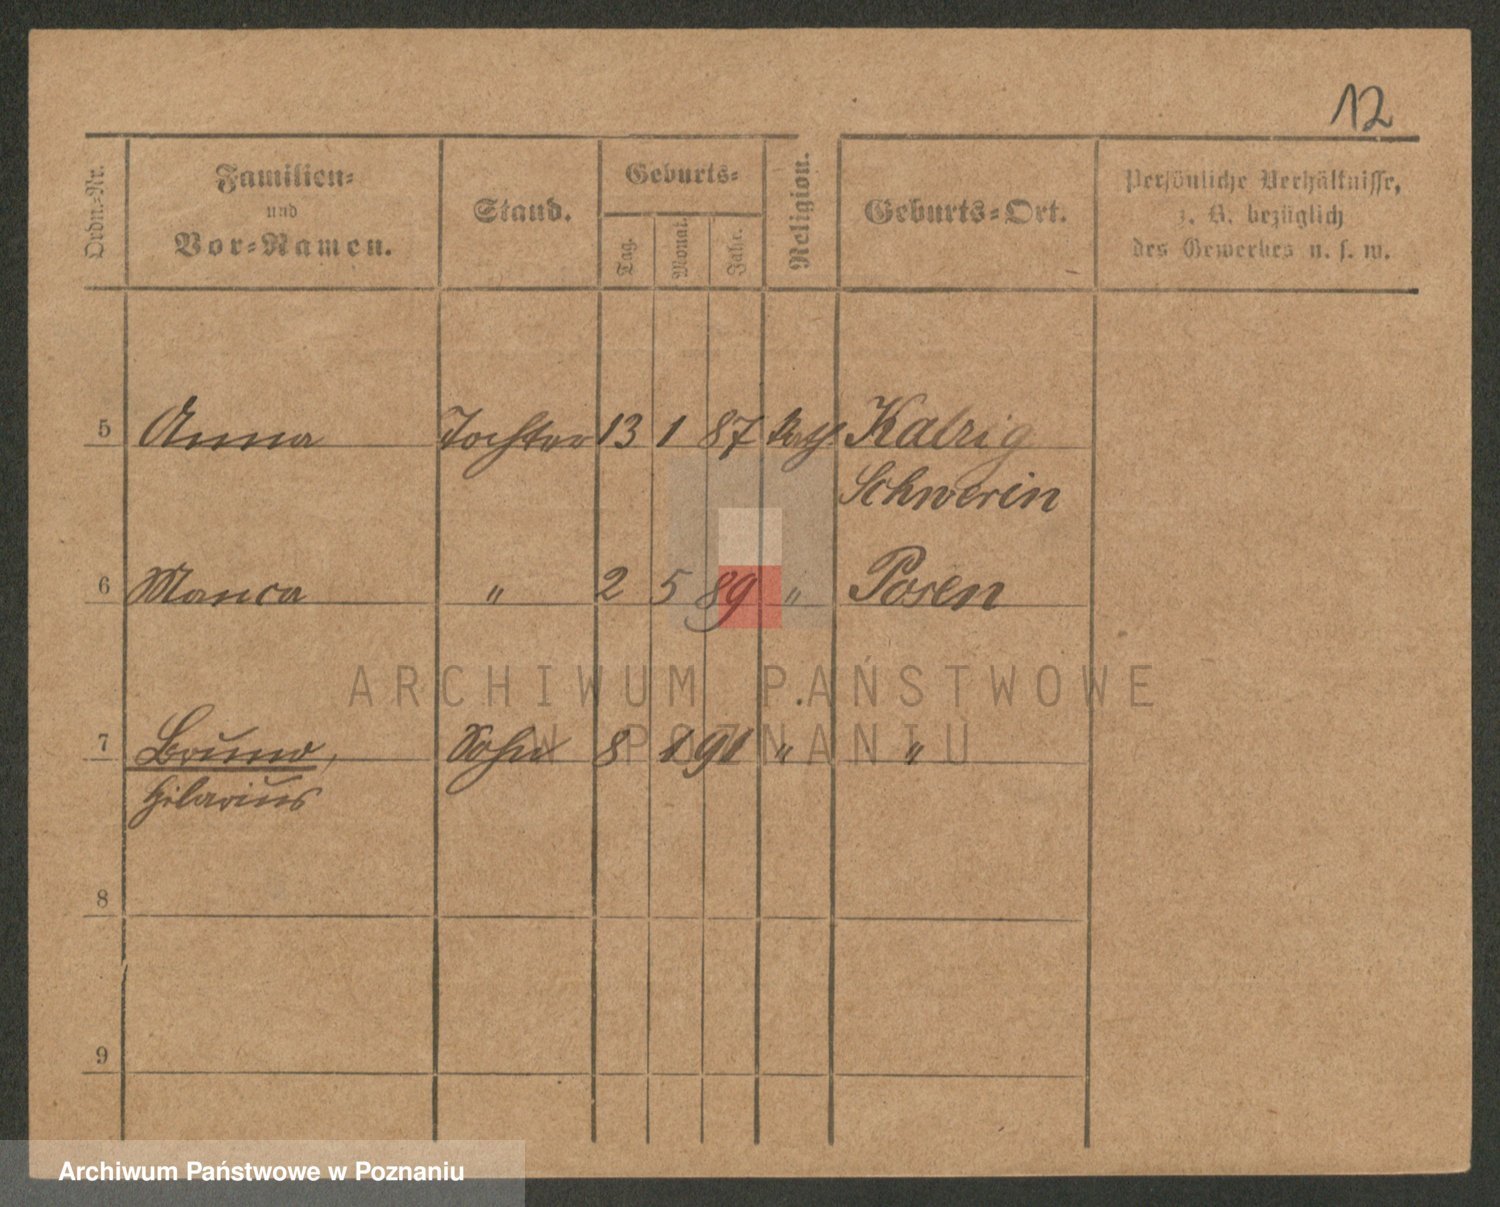 12
Ordn.-Nr.
Familien-
und
Vor-Namen.
Stand.
Geburts-
Tag. Monat. Jahr.
Religion.
Geburts-Ort.
Persönliche Verhältnisse,
z. B. bezüglich
des Gewerbes u. s. w.
5 Anna Tochter 13 1 87 Kath Kalzig
Schwerin
6 " 2 5 89 " Posen
7 Bruno, Sohn 8 1 91 " "
Hilarius
8
9
ARCHIWUM PAŃSTWOWE
W POZNANIU
Archiwum Państwowe w Poznaniu